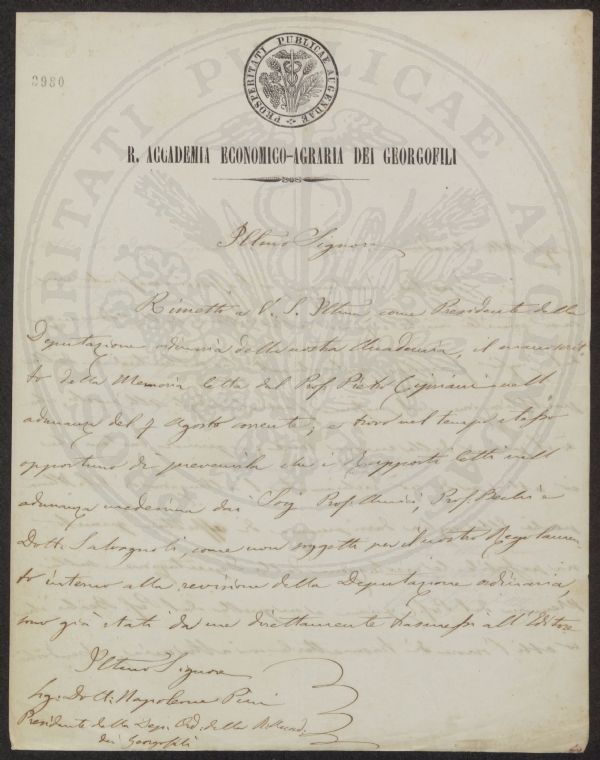 2980
PROSPERITATI PUBLICAE AUGENDAE
R. ACCADEMIA ECONOMICO-AGRARIA DEI GEORGOFILI
Illmo Signore
Rimetto a V. S. Illma come Presidente della
Deputazione ordinaria della nostra Accademia, il manoscrit-
to della Memoria letta dal Prof. Pietro Cipriani nell
adunanza del 7 Agosto corrente; e trovo nel tempo stesso
opportuno di prevenirla che i Rapporti letti nell
adunanza medesima dai Sigg. Prof. Amici, Prof. Bechi e
Dott. Salvagnoli, come non soggetti per Nostro Regolamen-
to interno alla revisione della Deputazione ordinaria,
sono già stati da me direttamente trasmessi all'Editore
Illmo Signore
Sig. Dott. Napoleone Pini
Presidente della Dep. Ord. della R. Accad.
dei Georgofili